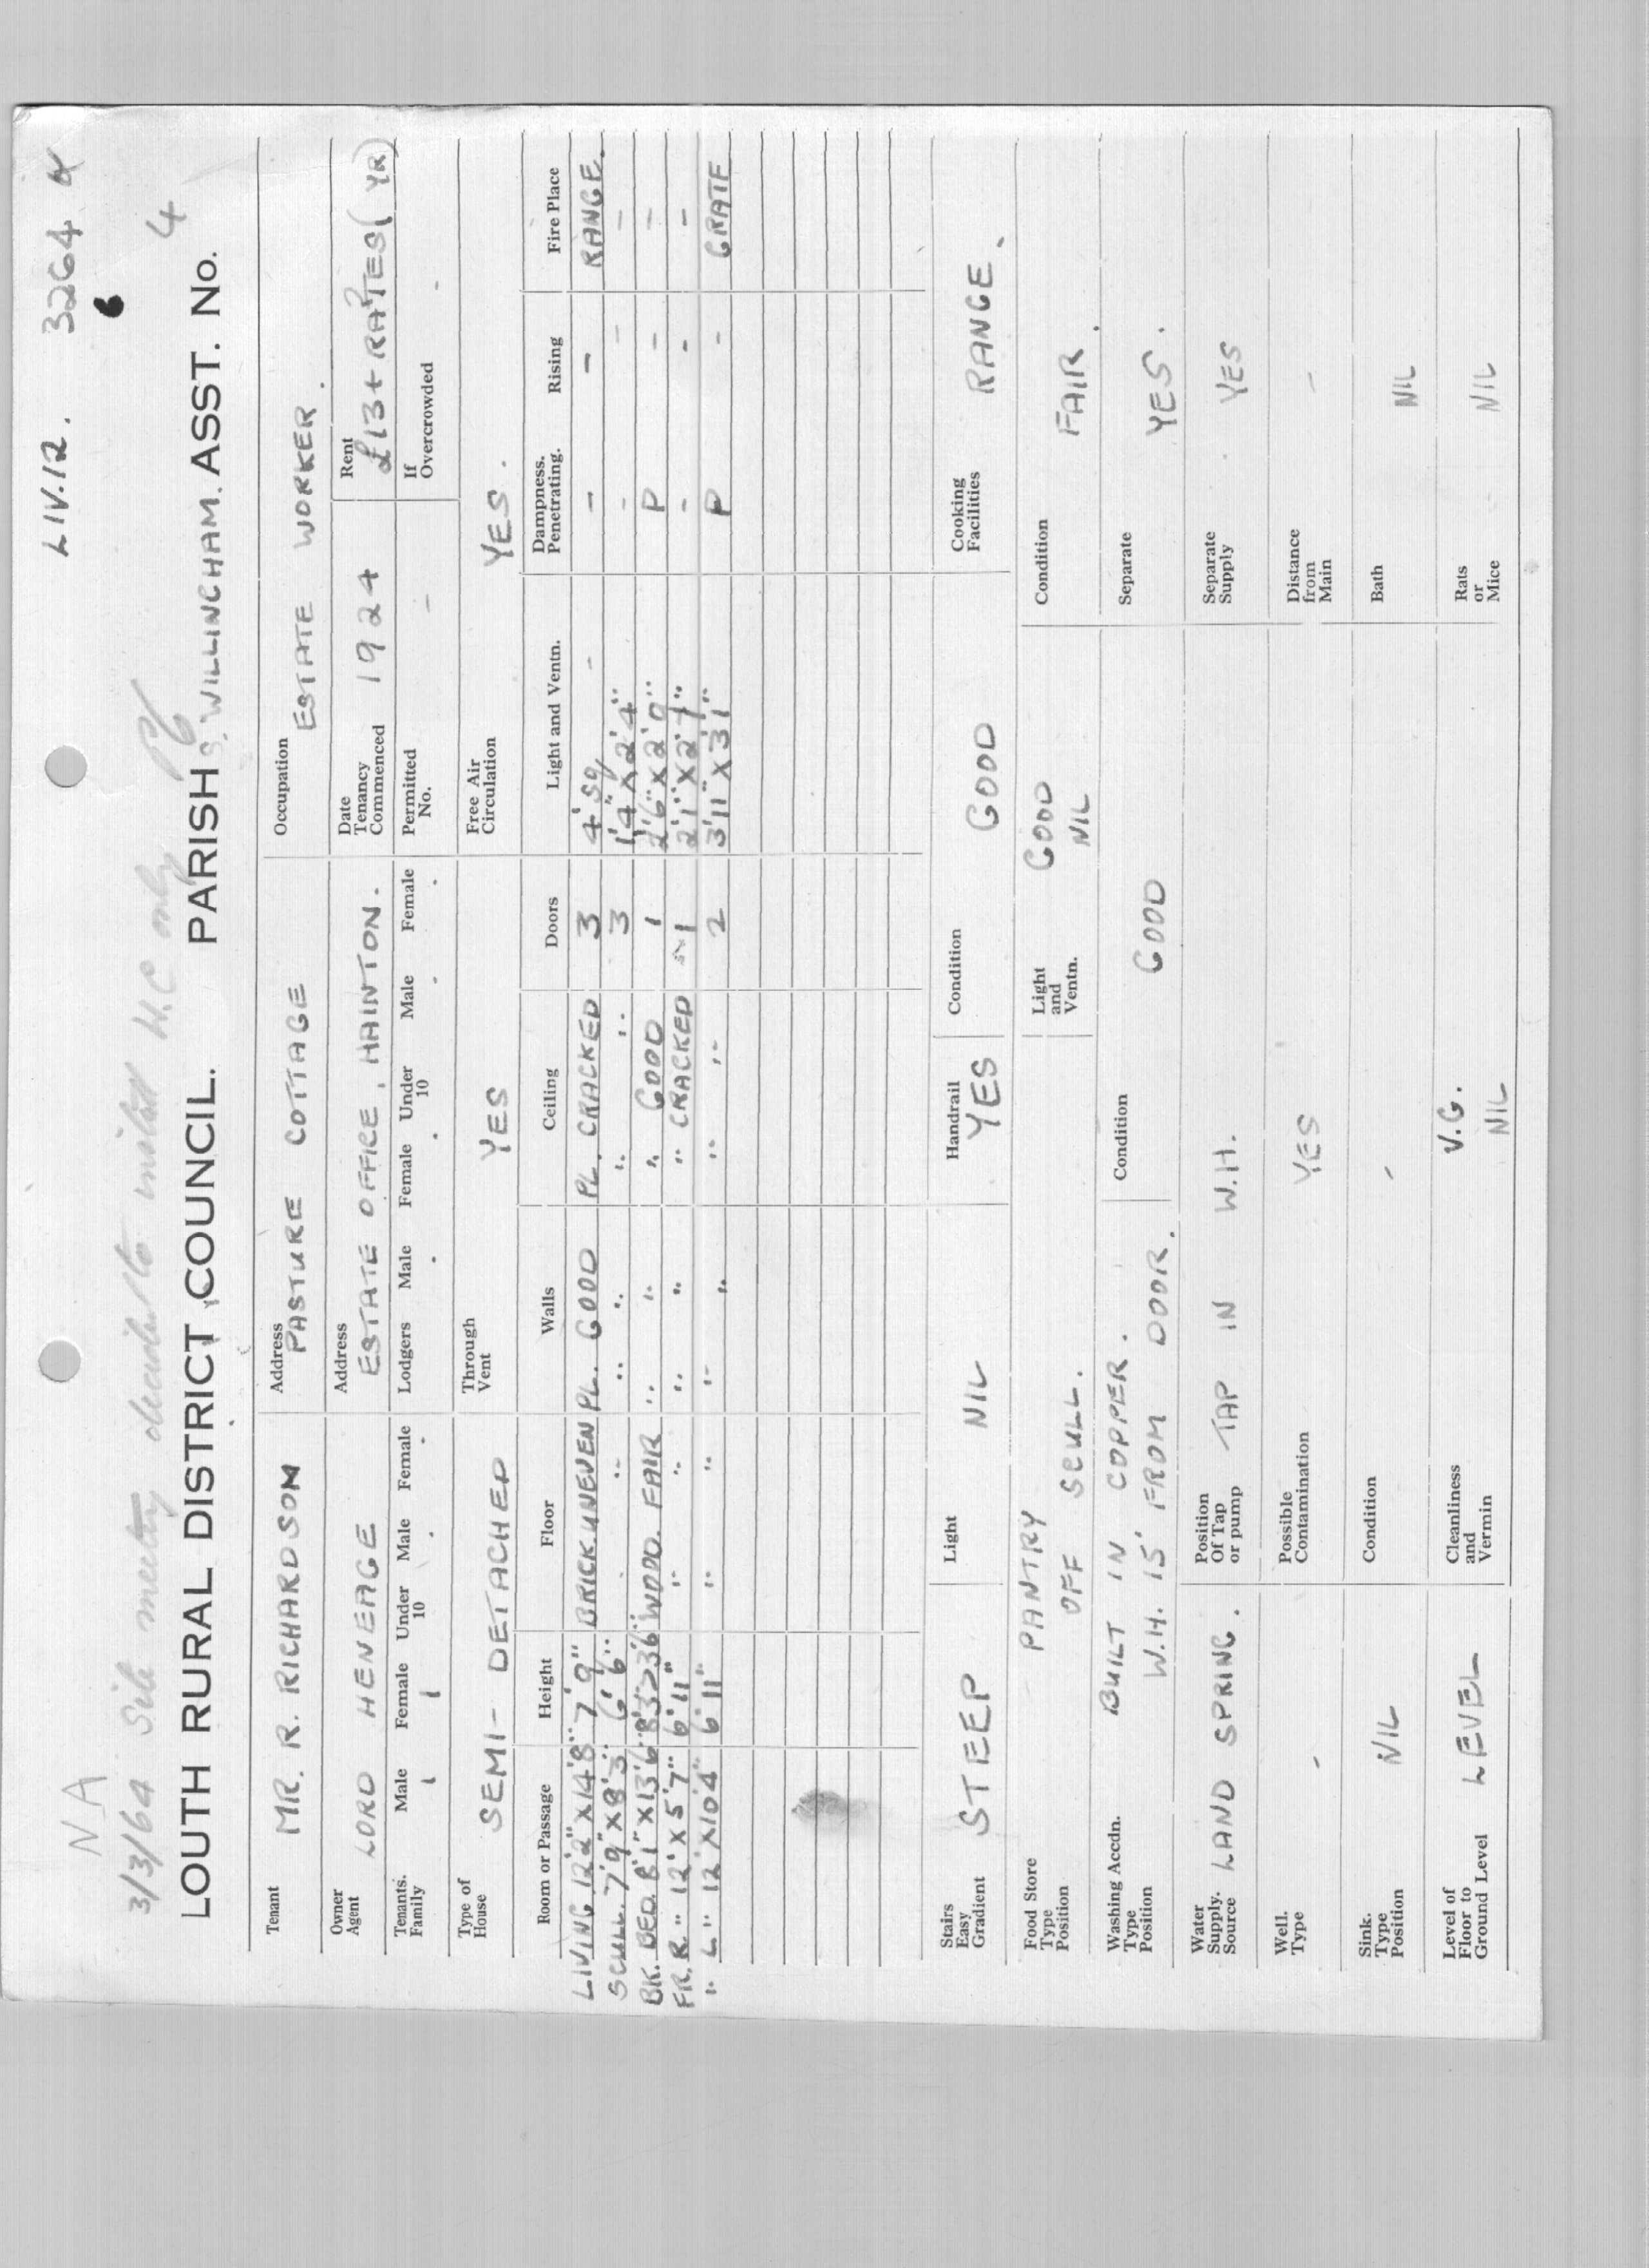 N A LIV.12. 3264
3/3/64 Site meeting decided to install W.C only 4
LOUTH RURAL DISTRICT COUNCIL. PARISH S. WILLINGHAM. ASST. No.
Tenant MR. R. RICHARDSON Address PASTURE COTTAGE Occupation ESTATE WORKER.
Owner Agent LORD HENEAGE Address ESTATE OFFICE, HAINTON. Date Tenancy Commenced 1924 Rent £13 + RATES (YR)
Tenants. Family Male 1 Female 1 Under 10 Male . Female . Lodgers Male . Female . Under 10 Male . Female . Permitted No. – If Overcrowded -
Type of House SEMI-DETACHED Through Vent YES Free Air Circulation YES.
Room or Passage Height Floor Walls Ceiling Doors Light and Ventn. Dampness. Penetrating. Rising Fire Place
LIVING 12'2" X 14'8" 7'9" BRICK UNEVEN PL. GOOD PL. CRACKED 3 4' SQ – – – RANGE.
SCULL. 7'9" X 8'3" 6'6" " " " " " 3 1'4" X 2'4" - - –
BK. BED. 8'1" X 13'6" WOOD. FAIR " " " GOOD 1 2'6" X 2'0" P – –
FR. R " 12' X 5'7" 6'11" " " " " " CRACKED 1 2'1" X 2'1" - - -
" L " 12' X 10'4" 6'11" " " " " " " 2 3'11" X 3'1" P - GRATE
Stairs Easy Gradient STEEP Light NIL Handrail YES Condition GOOD Cooking Facilities RANGE.
Food Store Type Position PANTRY OFF SCULL. Light and Ventn. GOOD NIL Condition FAIR.
Washing Accdn. Type Position BUILT IN COPPER. W.H. 15' FROM DOOR. Condition GOOD Separate YES.
Water Supply. Source LAND SPRING. Position Of Tap or pump TAP IN W.H. Separate Supply YES
Well. Type - Possible Contamination YES Distance from Main –
Sink. Type Position NIL Condition - Bath NIL
Level of Floor to Ground Level LEVEL Cleanliness and Vermin V.G. NIL Rats or Mice NIL